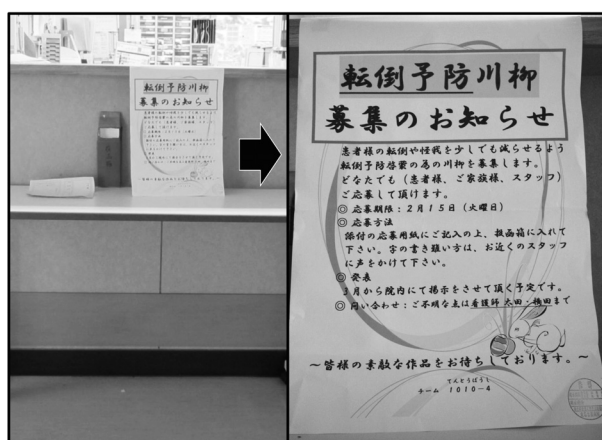 転倒予防川柳
募集のお知らせ
転倒予防川柳
募集のお知らせ
患者様の転倒や怪我を少しでも減らせるよう
転倒予防啓蒙の為の川柳を募集します。
どなたでも（患者様、ご家族様、スタッフ）
ご応募して頂けます。
◎ 応募期限：2月15日（火曜日）
◎ 応募方法
添付の応募用紙にご記入の上、投函箱に入れて
下さい。字の書き難い方は、お近くのスタッフ
に声をかけて下さい。
◎ 発表
3月から院内にて掲示をさせて頂く予定です。
◎ 問い合わせ：ご不明な点は看護師 太田・横田まで
～皆様の素敵な作品をお待ちしております。～
てんとうぼうし
チーム 1010-4